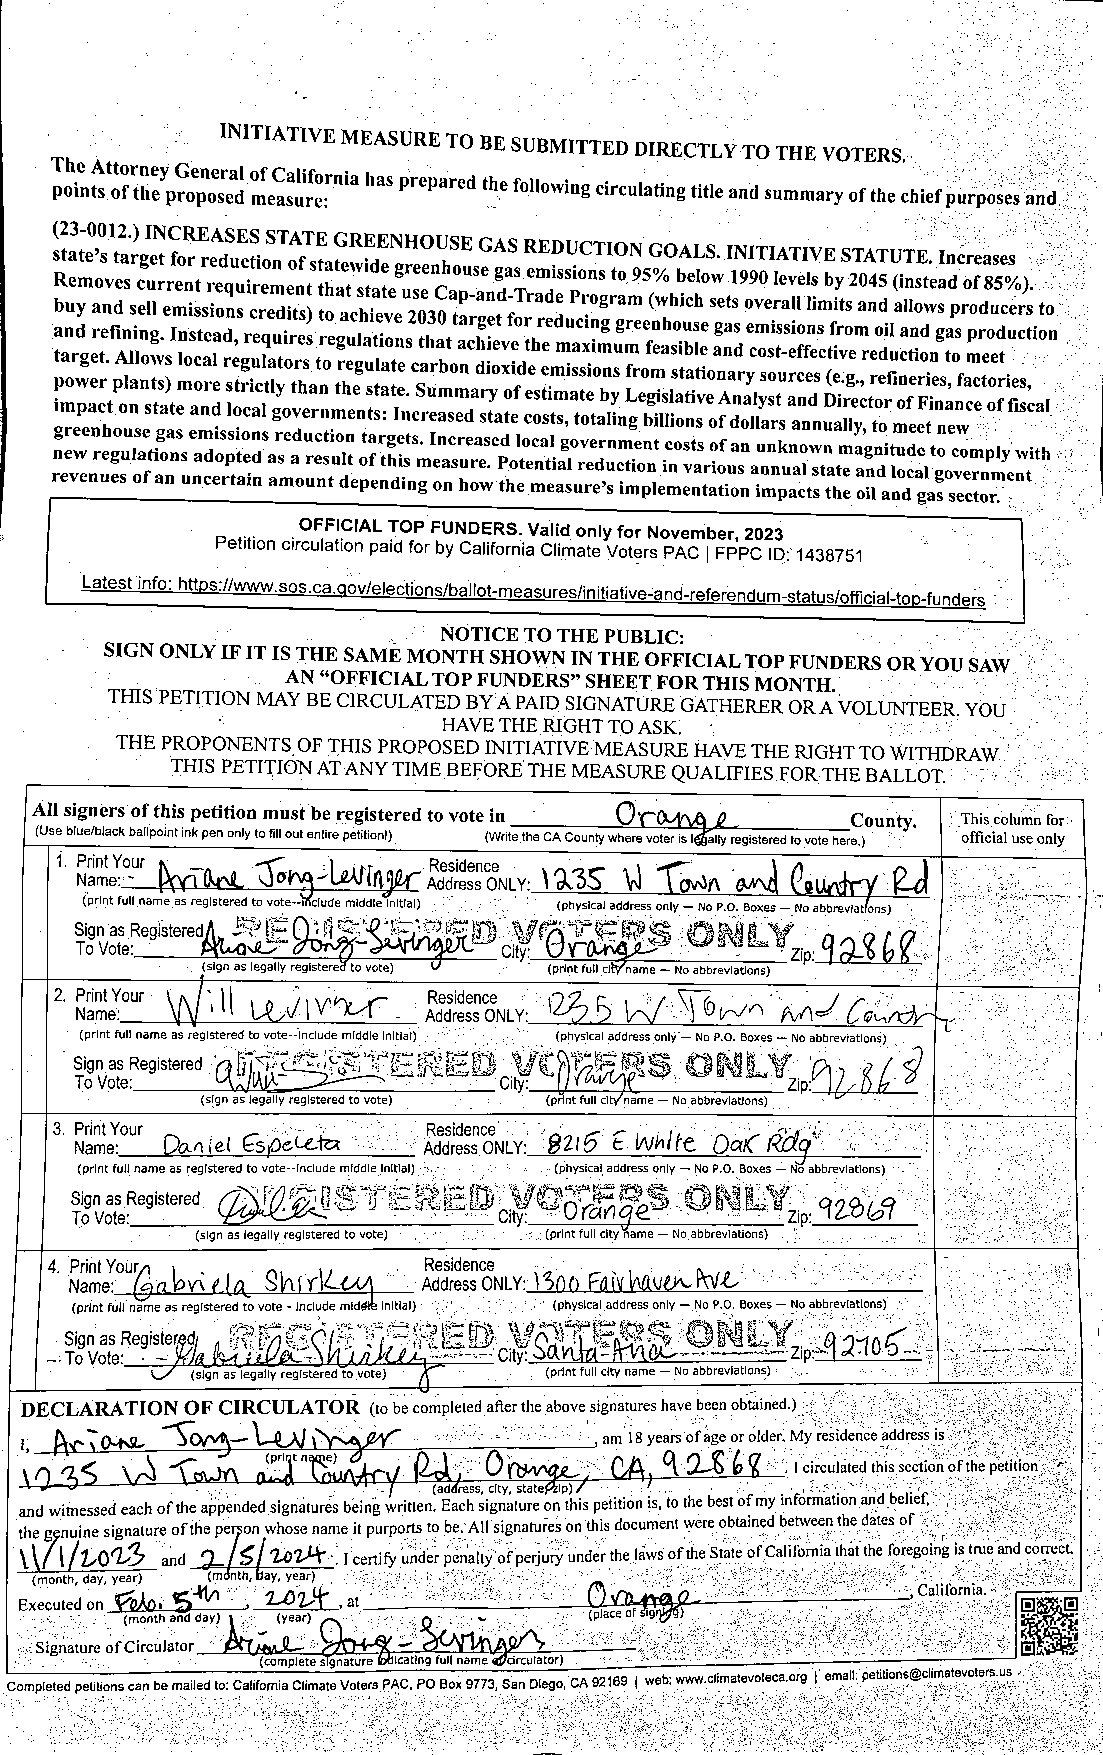 INITIATIVE MEASURE TO BE SUBMITTED DIRECTLY TO THE VOTERS.
The Attorney General of California has prepared the following circulating title and summary of the chief purposes and
points of the proposed measure:
(23-0012.) INCREASES STATE GREENHOUSE GAS REDUCTION GOALS. INITIATIVE STATUTE. Increases
state's target for reduction of statewide greenhouse gas emissions to 95% below 1990 levels by 2045 (instead of 85%).
Removes current requirement that state use Cap-and-Trade Program (which sets overall limits and allows producers to
buy and sell emissions credits) to achieve 2030 target for reducing greenhouse gas emissions from oil and gas production
and refining. Instead, requires regulations that achieve the maximum feasible and cost-effective reduction to meet
target. Allows local regulators to regulate carbon dioxide emissions from stationary sources (e.g., refineries, factories,
power plants) more strictly than the state. Summary of estimate by Legislative Analyst and Director of Finance of fiscal
impact on state and local governments: Increased state costs, totaling billions of dollars annually, to meet new
greenhouse gas emissions reduction targets. Increased local government costs of an unknown magnitude to comply with
new regulations adopted as a result of this measure. Potential reduction in various annual state and local government
revenues of an uncertain amount depending on how the measure's implementation impacts the oil and gas sector.
OFFICIAL TOP FUNDERS. Valid only for November, 2023
Petition circulation paid for by California Climate Voters PAC | FPPC ID: 1438751
Latest info: https://www.sos.ca.gov/elections/ballot-measures/initiative-and-referendum-status/official-top-funders
NOTICE TO THE PUBLIC:
SIGN ONLY IF IT IS THE SAME MONTH SHOWN IN THE OFFICIAL TOP FUNDERS OR YOU SAW
AN "OFFICIAL TOP FUNDERS" SHEET FOR THIS MONTH.
THIS PETITION MAY BE CIRCULATED BY A PAID SIGNATURE GATHERER OR A VOLUNTEER. YOU
HAVE THE RIGHT TO ASK.
THE PROPONENTS OF THIS PROPOSED INITIATIVE MEASURE HAVE THE RIGHT TO WITHDRAW
THIS PETITION AT ANY TIME BEFORE THE MEASURE QUALIFIES FOR THE BALLOT.
All signers of this petition must be registered to vote in Orange County. This column for
(Use blue/black ballpoint ink pen only to fill out entire petition!) (Write the CA County where voter is legally registered to vote here.) official use only
1. Print Your Name: Ariane Jong-Levinger Residence Address ONLY: 1235 W Town and Country Rd
(print full name as registered to vote--include middle initial) (physical address only — No P.O. Boxes — No abbreviations)
REGISTERED VOTERS ONLY
Sign as Registered To Vote: Ariane Jong-Levinger City: Orange Zip: 92868
(sign as legally registered to vote) (print full city name — No abbreviations)
2. Print Your Name: Will Levinger Residence Address ONLY: 1235 W Town and Country
(print full name as registered to vote--include middle initial) (physical address only — No P.O. Boxes — No abbreviations)
REGISTERED VOTERS ONLY
Sign as Registered To Vote: City: Orange Zip: 92868
(sign as legally registered to vote) (print full city name — No abbreviations)
3. Print Your Name: Daniel Espeleta Residence Address ONLY: 8215 E White Oak Rdg
(print full name as registered to vote--include middle initial) (physical address only — No P.O. Boxes — No abbreviations)
REGISTERED VOTERS ONLY
Sign as Registered To Vote: City: Orange Zip: 92869
(sign as legally registered to vote) (print full city name — No abbreviations)
4. Print Your Name: Gabriela Shirkey Residence Address ONLY: 1300 Fairhaven Ave
(print full name as registered to vote - include middle initial) (physical address only — No P.O. Boxes — No abbreviations)
REGISTERED VOTERS ONLY
Sign as Registered To Vote: Gabriela Shirkey City: Santa Ana Zip: 92705
(sign as legally registered to vote) (print full city name — No abbreviations)
DECLARATION OF CIRCULATOR (to be completed after the above signatures have been obtained.)
I, Ariane Jong-Levinger, am 18 years of age or older. My residence address is
(print name)
1235 W Town and Country Rd, Orange, CA, 92868. I circulated this section of the petition
(address, city, state, zip)
and witnessed each of the appended signatures being written. Each signature on this petition is, to the best of my information and belief,
the genuine signature of the person whose name it purports to be. All signatures on this document were obtained between the dates of
11/1/2023 and 2/5/2024. I certify under penalty of perjury under the laws of the State of California that the foregoing is true and correct.
(month, day, year) (month, day, year)
Executed on Feb. 5th, 2024, at Orange, California.
(month and day) (year) (place of signing)
Signature of Circulator Ariane Jong-Levinger
(complete signature indicating full name of circulator)
Completed petitions can be mailed to: California Climate Voters PAC, PO Box 9773, San Diego, CA 92169 | web: www.climatevoteca.org | email: petitions@climatevoters.us